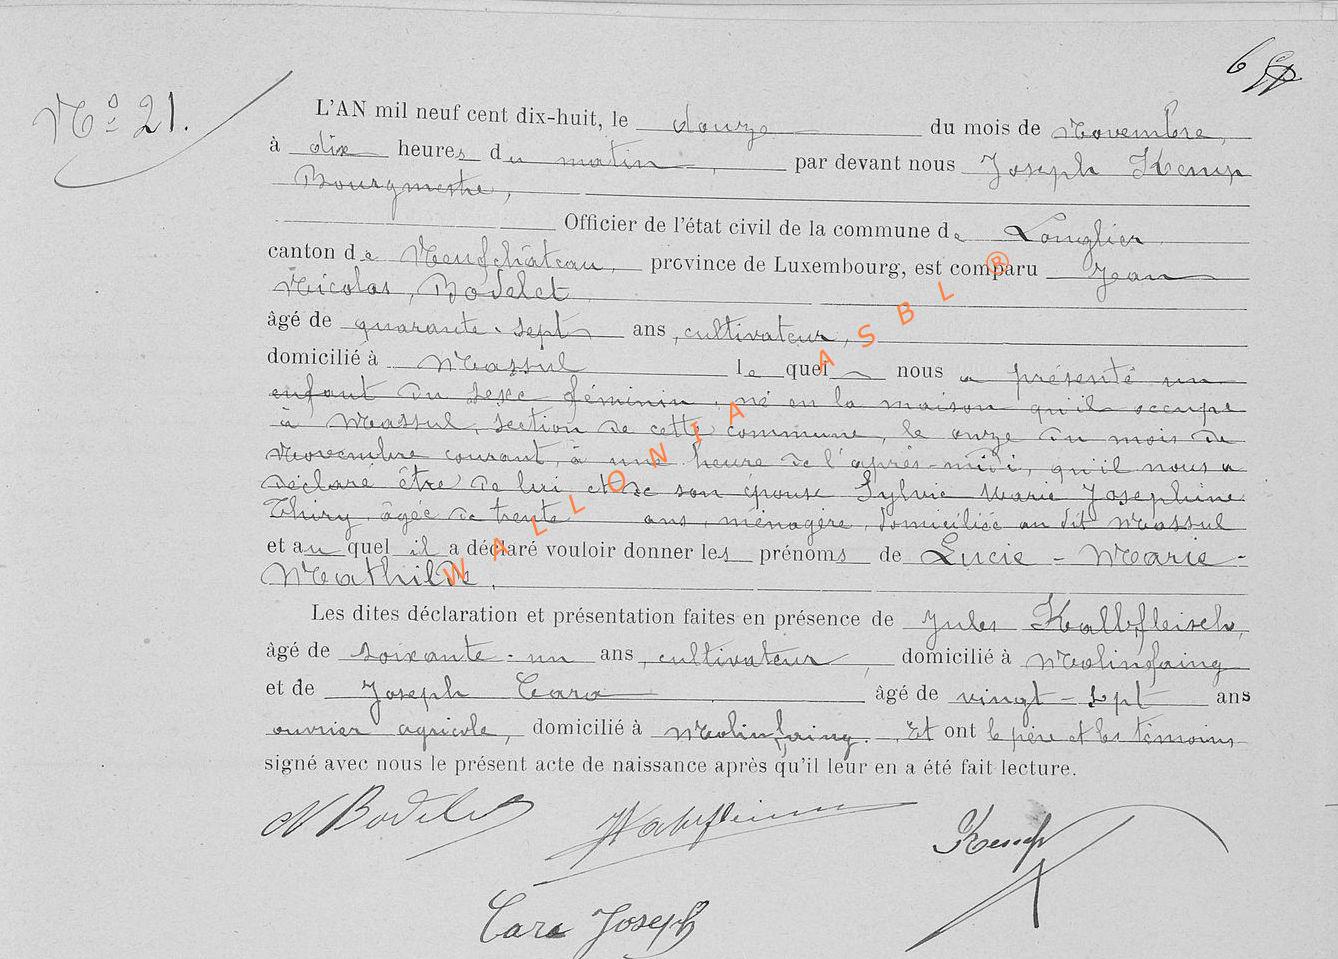 6
N° 21.
L'AN mil neuf cent dix-huit, le douze du mois de Novembre,
à dix heures du matin, par devant nous Joseph Kemp
Bourgmestre,
Officier de l'état civil de la commune de Longlier
canton de Neufchâteau, province de Luxembourg, est comparu Jean
Nicolas, Bodelet
âgé de quarante-sept ans, cultivateur,
domicilié à Massul lequel nous a présenté un
enfant du sexe féminin, né en la maison qu'il occupe
à Massul, section de cette commune, le onze du mois de
Novembre courant, à une heure de l'après-midi, qu'il nous a
déclaré être de lui et de son épouse Sylvie Marie Joséphine
Thiry, âgée de trente ans, ménagère, domiciliée au dit Massul
et au quel il a déclaré vouloir donner les prénoms de Lucie - Marie -
Mathilde.
Les dites déclaration et présentation faites en présence de Jules Kalbfleisch,
âgé de soixante-un ans, cultivateur, domicilié à Molinfaing
et de Joseph Cara âgé de vingt-sept ans
ouvrier agricole, domicilié à Molinfaing. Et ont le père et les témoins
signé avec nous le présent acte de naissance après qu'il leur en a été fait lecture.
N Bodelet Kalbfleisch Kemp
Cara Joseph
WALLONIA ASBL ®